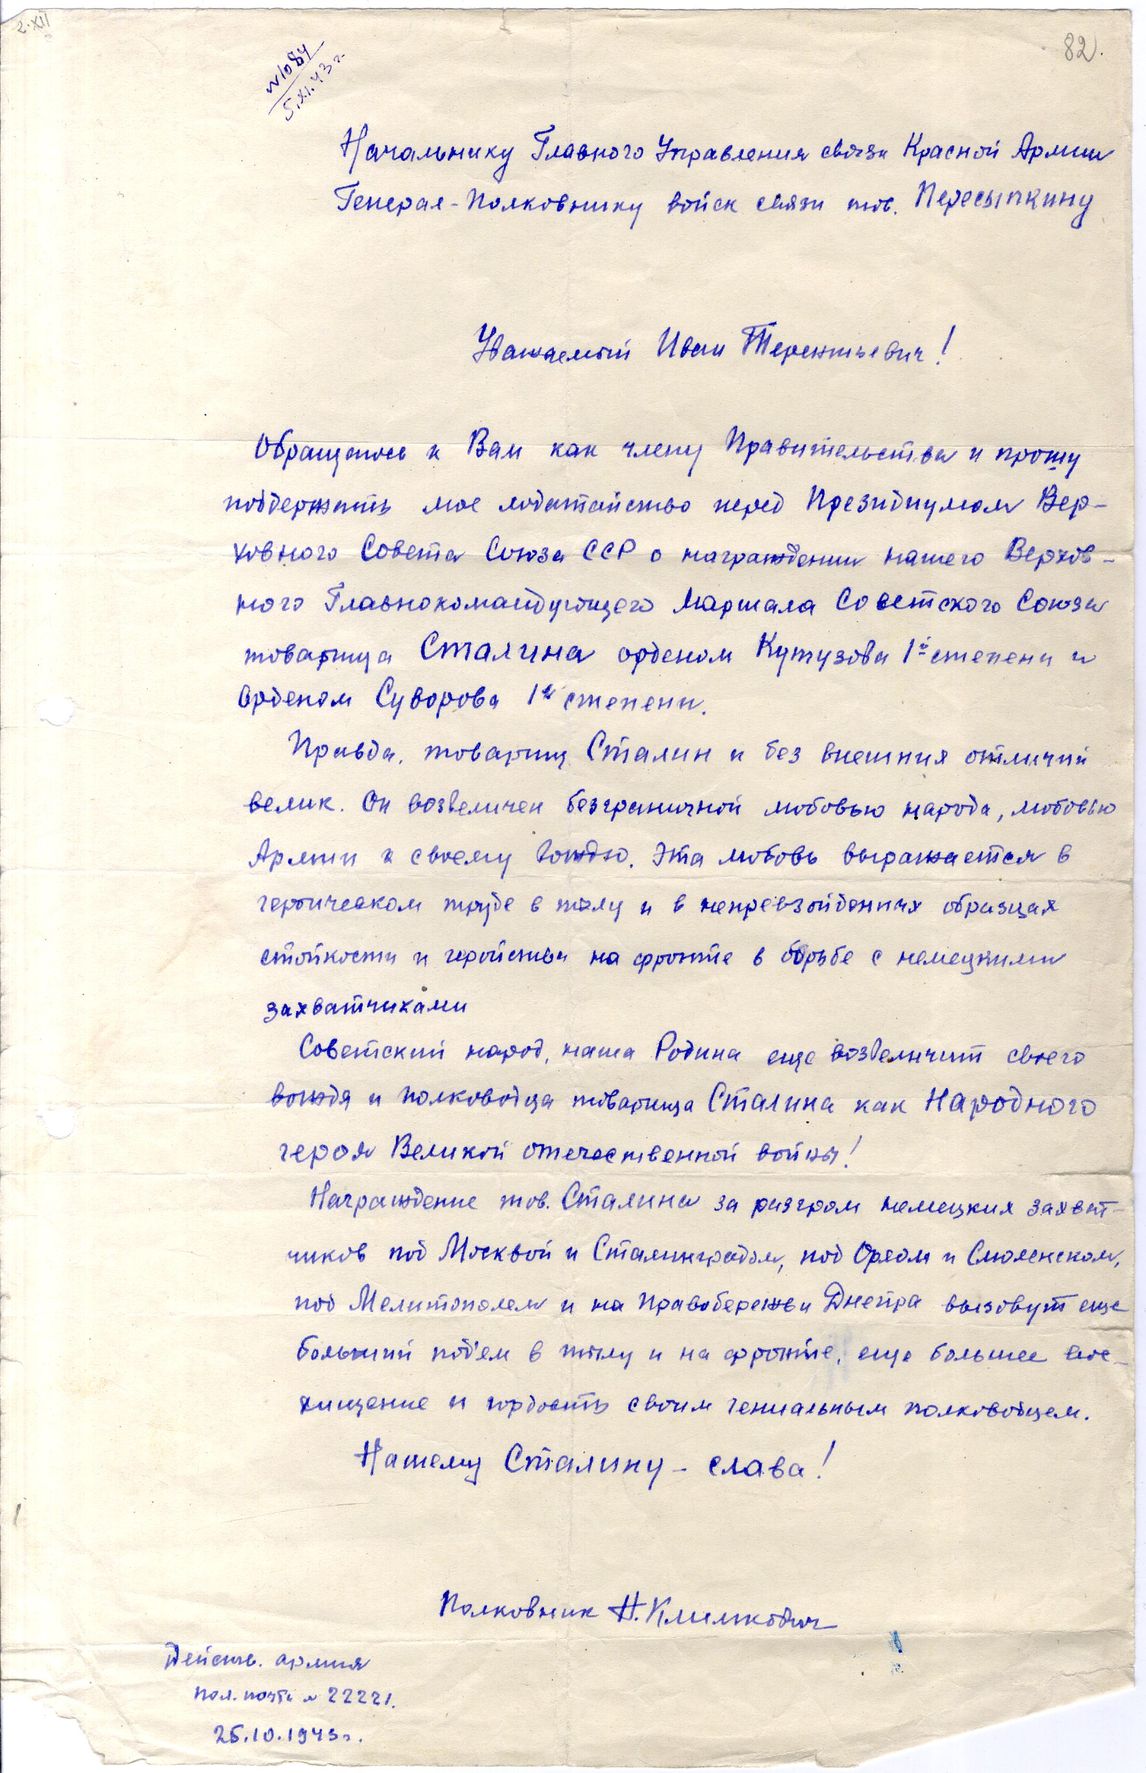 2.XII
82.
№1084
5.XI.43 г.
Начальнику Главного Управления связи Красной Армии
Генерал-Полковнику войск связи тов. Пересыпкину
Уважаемый Иван Терентьевич!
Обращаюсь к Вам как члену Правительства и прошу
поддержать мое ходатайство перед Президиумом Вер-
ховного Совета Союза ССР о награждении нашего Верхов-
ного Главнокомандующего Маршала Советского Союза
товарища Сталина орденом Кутузова 1й степени и
орденом Суворова 1й степени.
Правда, товарищ Сталин и без внешних отличий
велик. Он возвеличен безграничной любовью народа, любовью
Армии к своему вождю. Эта любовь выражается в
героическом труде в тылу и в непревзойденных образцах
стойкости и геройства на фронте в борьбе с немецкими
захватчиками
Советский народ, наша Родина еще возвеличит своего
вождя и полководца товарища Сталина как Народного
героя Великой отечественной войны!
Награждение тов. Сталина за разгром немецких захват-
чиков под Москвой и Сталинградом, под Орлом и Смоленском,
под Мелитополем и на правобережьи Днепра вызовут еще
больший подъем в тылу и на фронте, еще большее вос-
хищение и гордость своим гениальным полководцем.
Нашему Сталину - слава!
Полковник Н. Климкович
Действ. армия
пол. почта № 22221.
25.10.1943 г.